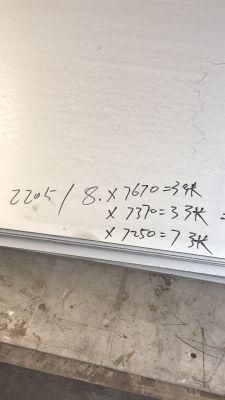 2205 / 8. × 7670 = 3 张
× 7370 = 3 张
× 7250 = 7 张